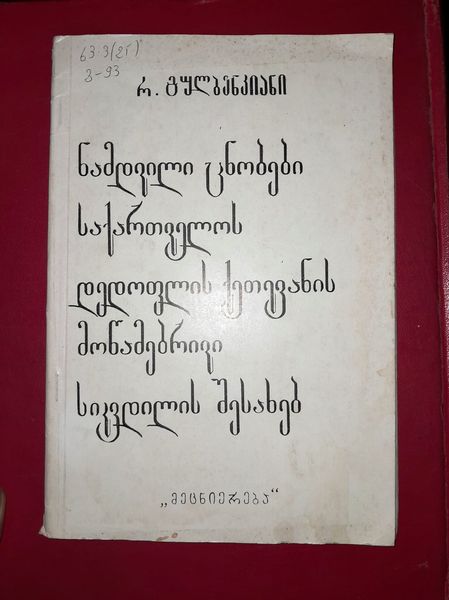 63.3(2Г)
გ-93
რ. გულბენკიანი
ნამდვილი ცნობები
საქართველოს
დედოფლის ქეთევანის
მოწამებრივი
სიკვდილის შესახებ
„მეცნიერება“